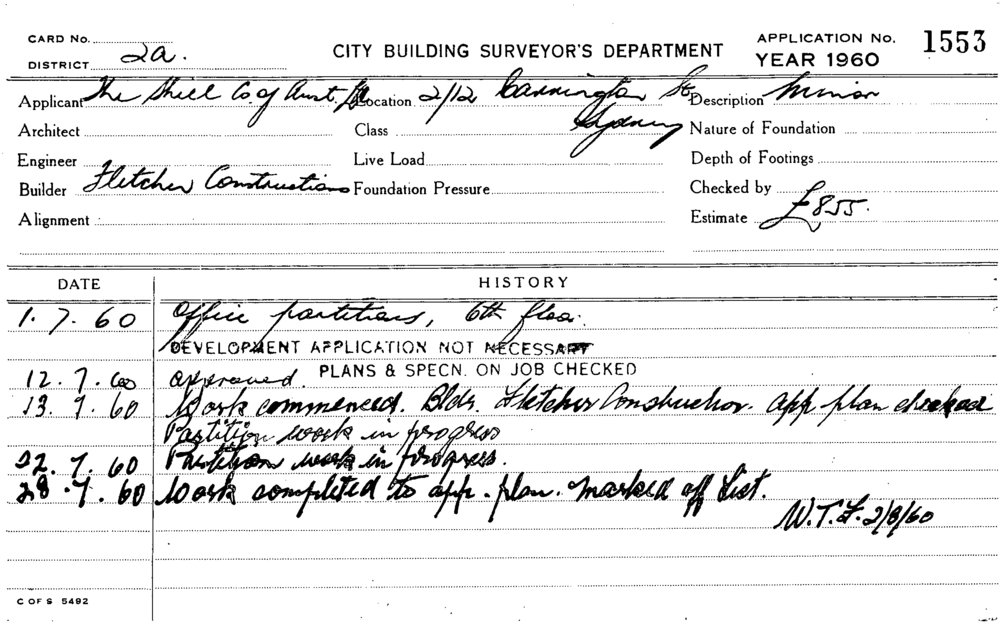 CARD No.
DISTRICT 2a.
CITY BUILDING SURVEYOR'S DEPARTMENT
APPLICATION No. 1553
YEAR 1960
Applicant The Shell Co. of Aust. Ltd Location 2/12 Carrington St. Sydney Description Minor
Architect Class Nature of Foundation
Engineer Live Load Depth of Footings
Builder Fletcher Constructions Foundation Pressure Checked by
Alignment Estimate £855.
DATE HISTORY
1. 7. 60 Office partitions, 6th floor.
DEVELOPMENT APPLICATION NOT NECESSARY
12. 7. 60 approved. PLANS & SPECN. ON JOB CHECKED
13. 7. 60 Work commenced. Bldr. Fletcher Construction. app plan checked
Partition work in progress
22. 7. 60 Partition work in progress.
28. 7. 60 Work completed to app. plan. Marked off List.
W.T.F. 2/8/60
C OF S 5492